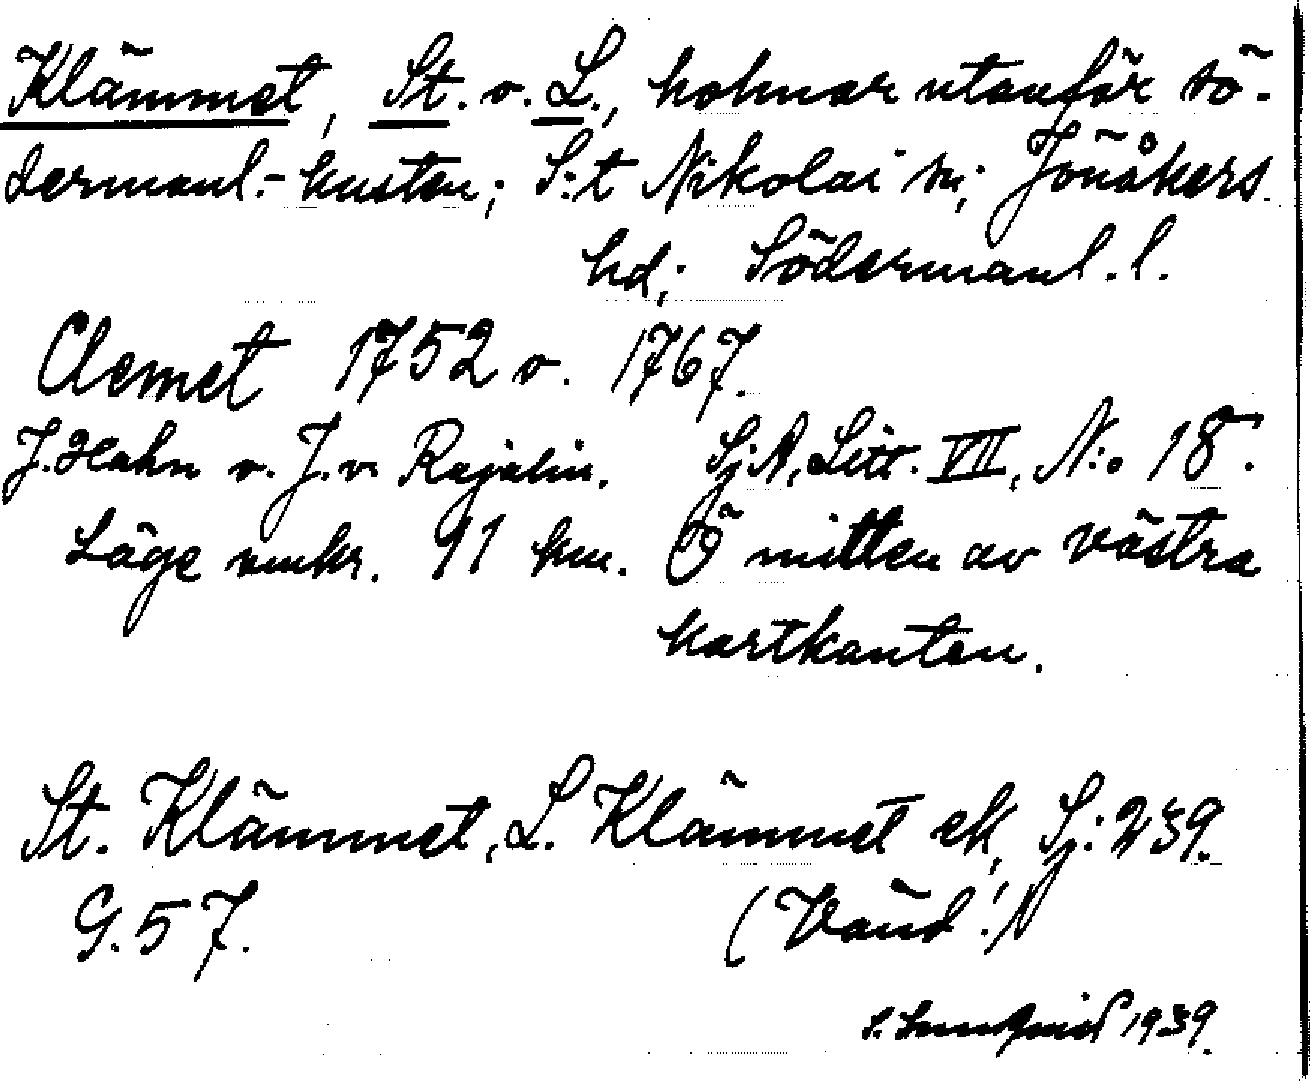 Klämmet, St. o. L., holmar utanför sö-
dermanl.-kusten; S:t Nikolai sn; Jönåkers
hd; Södermanl. l.
Clemet 1752 o. 1767.
J. Hahn o. J. v. Rajalin. Sj:A, Litt. VII, N:o 18.
Läge omkr. 91 km. Ö mitten av västra
kartkanten.
St. Klämmet, L. Klämmet ek, Sj: 239.
G. 57. (Vänd!)
1939.